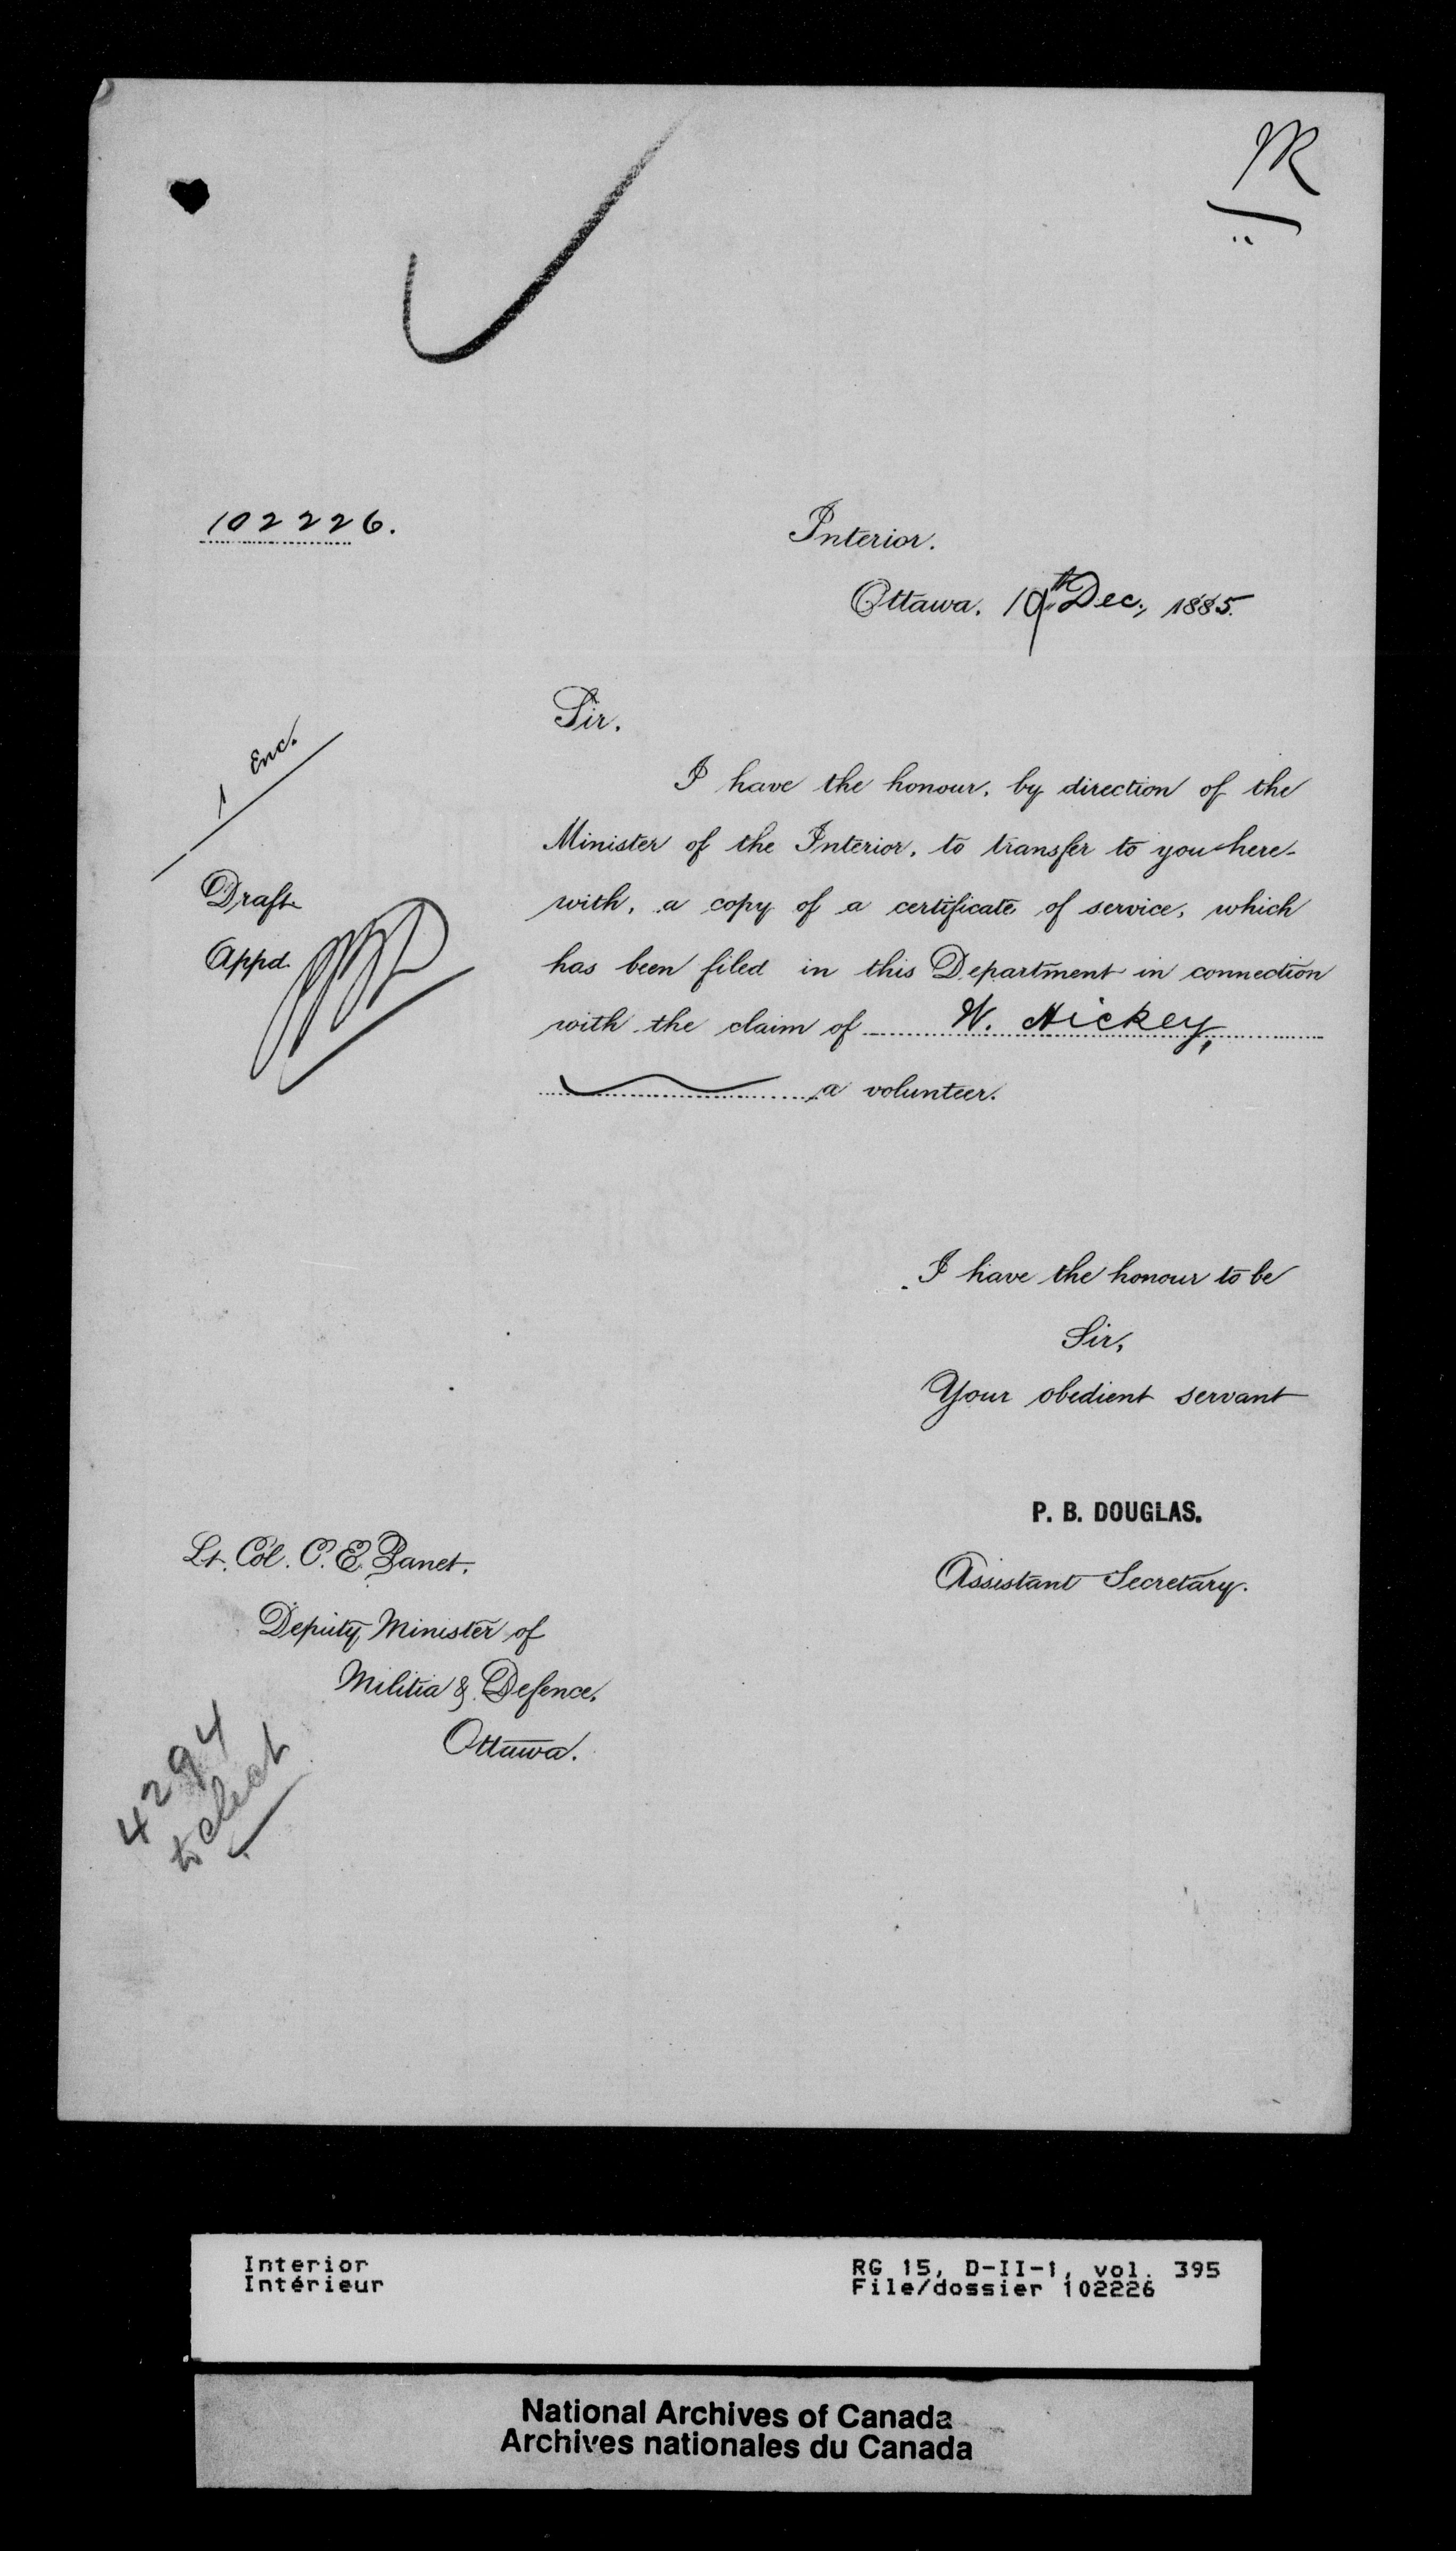 102226.
Interior.
Ottawa, 19th Dec., 1885.
1 Enc.
Sir,
I have the honour, by direction of the
Minister of the Interior, to transfer to you here-
with, a copy of a certificate of service, which
has been filed in this Department in connection
with the claim of W. Hickey,
a volunteer.
Draft
Appd.
I have the honour to be
Sir,
Your obedient servant
P. B. DOUGLAS.
Assistant Secretary.
Lt. Col. C. E. Panet,
Deputy Minister of
Militia & Defence,
Ottawa.
4294
Interior
Intérieur
RG 15, D-II-1, vol. 395
File/dossier 102226
National Archives of Canada
Archives nationales du Canada